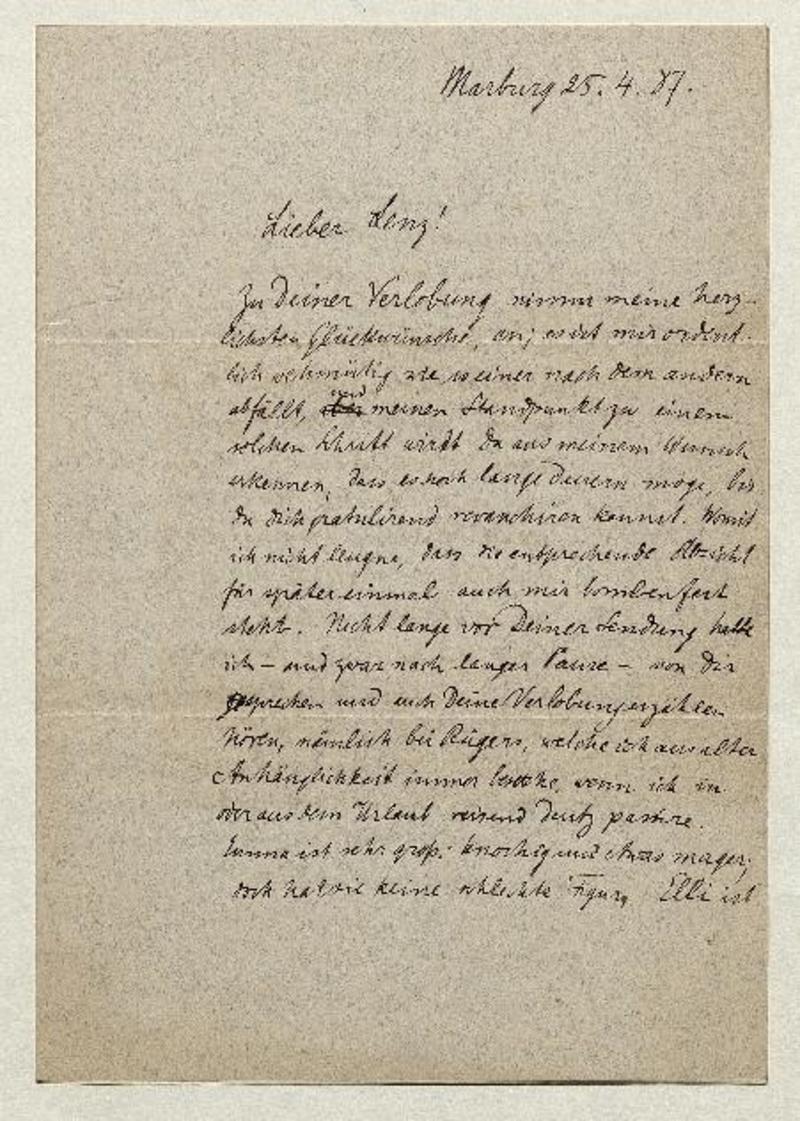 Marburg 25. 4. 87.
Lieber Lenz!
Zu Deiner Verlobung nimm meine herz-
lichsten Glückwünsche, an; es ist mir ordent-
lich wehmütig wie so einer nach dem andern
abfällt, und meinen Standpunkt zu einem
solchen Schritt wirst Du aus meinem Wunsch
erkennen, dass es noch lange dauern möge, bis
du dich gratulirend revanchiren kannst. Womit
ich nicht leugne, dass die entsprechende Absicht
für später einmal auch mir bombenfest
steht. Nicht lange vor Deiner Sendung hatte
ich – und zwar nach langer Pause – von Dir
sprechen und auch Deine Verlobung erzählen
hören, nämlich bei Rügers, welche ich aus alter
Anhänglichkeit immer besuche, wenn ich in
oder aus dem Urlaub reisend Deutz passire.
Emma ist sehr groß, knochig und etwas mager;
doch hat sie keine schlechte Figur, Elli ist